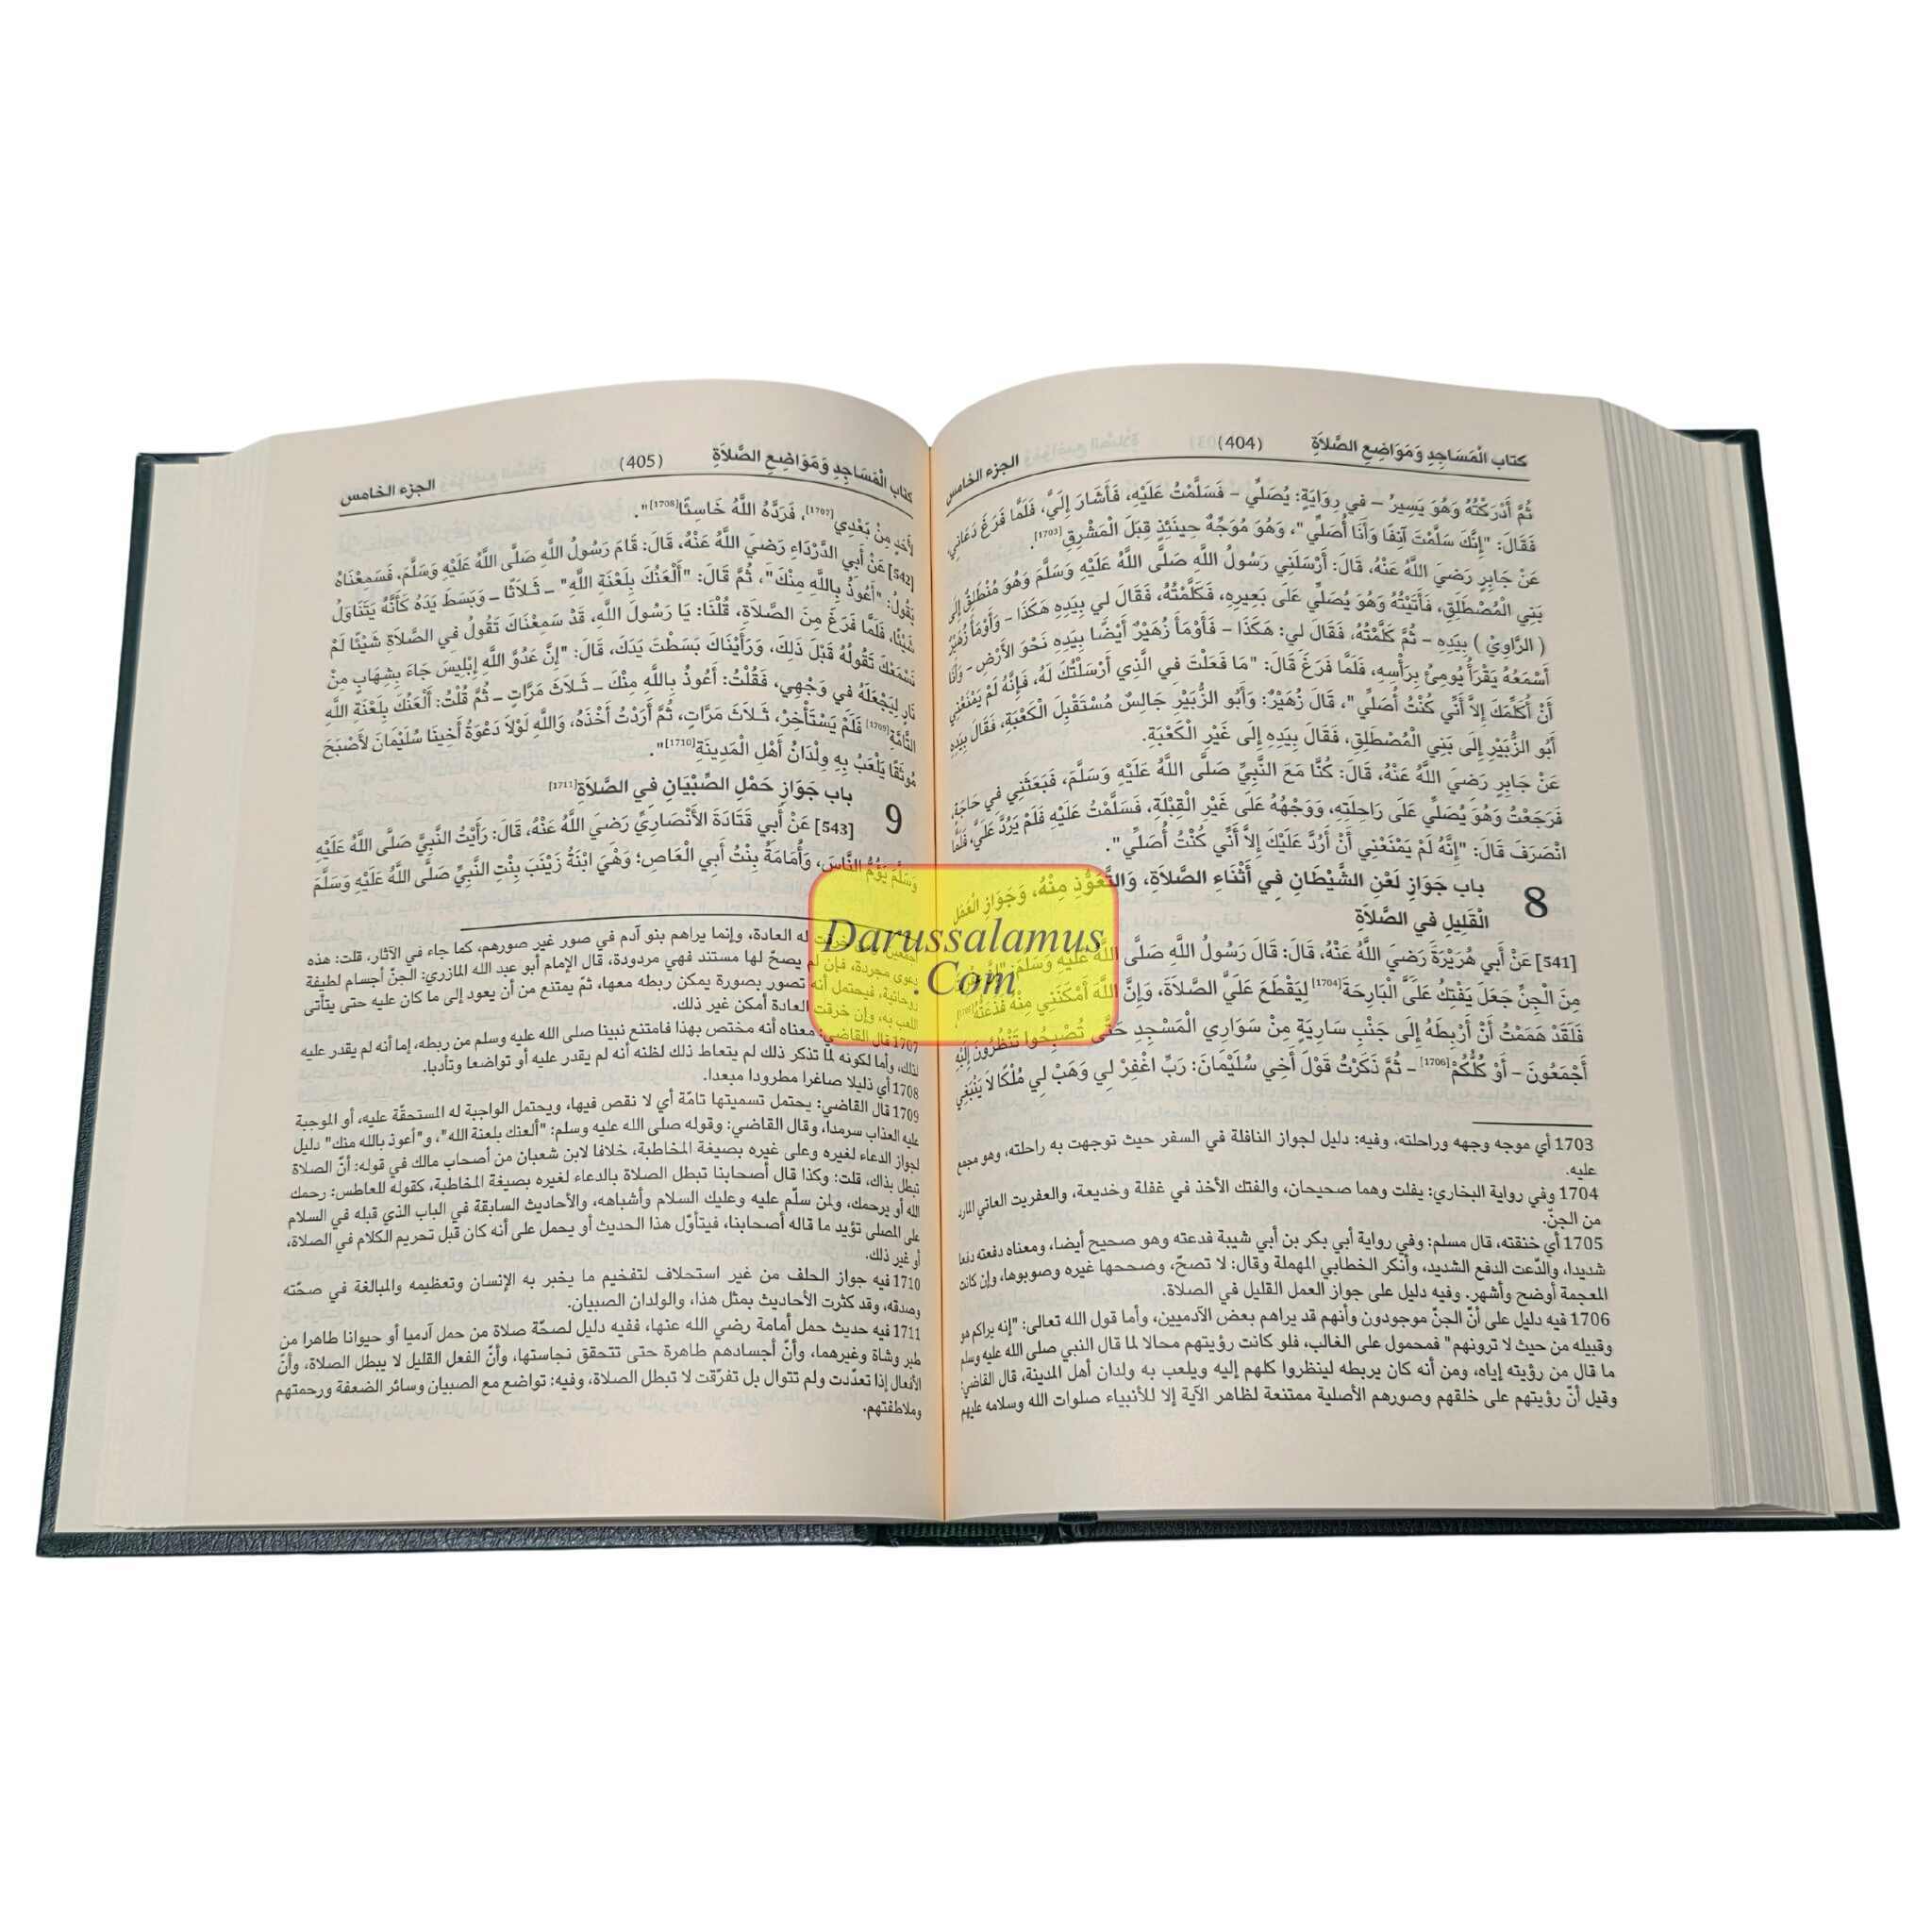 كتاب الْمَسَاجِدِ وَمَوَاضِعِ الصَّلاَةِ (404) الجزء الخامس
ثُمَّ أَدْرَكْتُهُ وَهُوَ يَسِيرُ – في رِوَايَةٍ: يُصَلِّي – فَسَلَّمْتُ عَلَيْهِ، فَأَشَارَ إِلَيَّ، فَلَمَّا فَرَغَ دَعَانِي
فَقَالَ: "إِنَّكَ سَلَّمْتَ آنِفًا وَأَنَا أُصَلِّي"، وَهُوَ مُوَجِّهٌ حِينَئِذٍ قِبَلَ الْمَشْرِقِ[1703].
عَنْ جَابِرٍ رَضيَ اللَّهُ عَنْهُ، قَالَ: أَرْسَلَنِي رَسُولُ اللَّهِ صَلَّى اللَّهُ عَلَيْهِ وَسَلَّمَ وَهُوَ مُنْطَلِقٌ إِلَى
بَنِي الْمُصْطَلِقِ، فَأَتَيْتُهُ وَهُوَ يُصَلِّي عَلَى بَعِيرِهِ، فَكَلَّمْتُهُ، فَقَالَ لي بِيَدِهِ هَكَذَا – وَأَوْمَأَ زُهَيْرٌ
( الرَّاوِيْ ) بِيَدِهِ – ثُمَّ كَلَّمْتُهُ، فَقَالَ لي: هَكَذَا – فَأَوْمَأَ زُهَيْرٌ أَيْضًا بِيَدِهِ نَحْوَ الأَرْضِ – وَأَنَا
أَسْمَعُهُ يَقْرَأُ يُومِئُ بِرَأْسِهِ، فَلَمَّا فَرَغَ قَالَ: "مَا فَعَلْتَ فِي الَّذِي أَرْسَلْتُكَ لَهُ، فَإِنَّهُ لَمْ يَمْنَعْنِي
أَنْ أُكَلِّمَكَ إِلاَّ أَنِّي كُنْتُ أُصَلِّي"، قَالَ زُهَيْرٌ: وَأَبُو الزُّبَيْرِ جَالِسٌ مُسْتَقْبِلَ الْكَعْبَةِ، فَقَالَ بِيَدِهِ
أَبُو الزُّبَيْرِ إِلَى بَنِي الْمُصْطَلِقِ، فَقَالَ بِيَدِهِ إِلَى غَيْرِ الْكَعْبَةِ.
عَنْ جَابِرٍ رَضيَ اللَّهُ عَنْهُ، قَالَ: كُنَّا مَعَ النَّبِيِّ صَلَّى اللَّهُ عَلَيْهِ وَسَلَّمَ، فَبَعَثَنِي فِي حَاجَةٍ،
فَرَجَعْتُ وَهُوَ يُصَلِّي عَلَى رَاحِلَتِهِ، وَوَجْهُهُ عَلَى غَيْرِ الْقِبْلَةِ، فَسَلَّمْتُ عَلَيْهِ فَلَمْ يَرُدَّ عَلَيَّ، فَلَمَّا
انْصَرَفَ قَالَ: "إِنَّهُ لَمْ يَمْنَعْنِي أَنْ أَرُدَّ عَلَيْكَ إِلاَّ أَنِّي كُنْتُ أُصَلِّي".
8 باب جَوَازِ لَعْنِ الشَّيْطَانِ فِي أَثْنَاءِ الصَّلاَةِ، وَالتَّعَوُّذِ مِنْهُ، وَجَوَازِ الْعَمَلِ
الْقَلِيلِ فِي الصَّلاَةِ
[541] عَنْ أَبِي هُرَيْرَةَ رَضيَ اللَّهُ عَنْهُ، قَالَ: قَالَ رَسُولُ اللَّهِ صَلَّى اللَّهُ عَلَيْهِ وَسَلَّمَ:
مِنَ الْجِنِّ جَعَلَ يَفْتِكُ عَلَيَّ الْبَارِحَةَ[1704] لِيَقْطَعَ عَلَيَّ الصَّلاَةَ، وَإِنَّ اللَّهَ أَمْكَنَنِي مِنْهُ فَذَعَتُّهُ[1705]
فَلَقَدْ هَمَمْتُ أَنْ أَرْبِطَهُ إِلَى جَنْبِ سَارِيَةٍ مِنْ سَوَارِي الْمَسْجِدِ حَتَّى تُصْبِحُوا تَنْظُرُونَ إِلَيْهِ
أَجْمَعُونَ – أَوْ كُلُّكُمْ[1706] – ثُمَّ ذَكَرْتُ قَوْلَ أَخِي سُلَيْمَانَ: رَبِّ اغْفِرْ لِي وَهَبْ لِي مُلْكًا لاَ يَنْبَغِي
1703 أي موجه وجهه وراحلته، وفيه: دليل لجواز النافلة في السفر حيث توجهت به راحلته، وهو مجمع
عليه.
1704 وفي رواية البخاري: يفلت وهما صحيحان، والفتك الأخذ في غفلة وخديعة، والعفريت العاتي المارد
من الجنّ.
1705 أي خنقته، قال مسلم: وفي رواية أبي بكر بن أبي شيبة فدعته وهو صحيح أيضا، ومعناه دفعته دفعا
شديدا، والدّعت الدفع الشديد، وأنكر الخطابي المهملة وقال: لا تصحّ، وصححها غيره وصوبوها، وإن كانت
المعجمة أوضح وأشهر. وفيه دليل على جواز العمل القليل في الصلاة.
1706 فيه دليل على أنّ الجنّ موجودون وأنهم قد يراهم بعض الآدميين، وأما قول الله تعالى: "إنه يراكم هو
وقبيله من حيث لا ترونهم" فمحمول على الغالب، فلو كانت رؤيتهم محالا لما قال النبي صلى الله عليه وسلم
ما قال من رؤيته إياه، ومن أنه كان يربطه لينظروا كلهم إليه ويلعب به ولدان أهل المدينة، قال القاضي:
وقيل أنّ رؤيتهم على خلقهم وصورهم الأصلية ممتنعة لظاهر الآية إلا للأنبياء صلوات الله وسلامه عليهم
كتاب الْمَسَاجِدِ وَمَوَاضِعِ الصَّلاَةِ (405) الجزء الخامس
لأَحَدٍ مِنْ بَعْدِي[1707]، فَرَدَّهُ اللَّهُ خَاسِئًا[1708]".
[542] عَنْ أَبِي الدَّرْدَاءِ رَضيَ اللَّهُ عَنْهُ، قَالَ: قَامَ رَسُولُ اللَّهِ صَلَّى اللَّهُ عَلَيْهِ وَسَلَّمَ، فَسَمِعْنَاهُ
يَقُولُ: "أَعُوذُ بِاللَّهِ مِنْكَ"، ثُمَّ قَالَ: "أَلْعَنُكَ بِلَعْنَةِ اللَّهِ" – ثَلاَثًا – وَبَسَطَ يَدَهُ كَأَنَّهُ يَتَنَاوَلُ
شَيْئًا، فَلَمَّا فَرَغَ مِنَ الصَّلاَةِ، قُلْنَا: يَا رَسُولَ اللَّهِ، قَدْ سَمِعْنَاكَ تَقُولُ فِي الصَّلاَةِ شَيْئًا لَمْ
نَسْمَعْكَ تَقُولُهُ قَبْلَ ذَلِكَ، وَرَأَيْنَاكَ بَسَطْتَ يَدَكَ، قَالَ: "إِنَّ عَدُوَّ اللَّهِ إِبْلِيسَ جَاءَ بِشِهَابٍ مِنْ
نَارٍ لِيَجْعَلَهُ فِي وَجْهِي، فَقُلْتُ: أَعُوذُ بِاللَّهِ مِنْكَ – ثَلاَثَ مَرَّاتٍ – ثُمَّ قُلْتُ: أَلْعَنُكَ بِلَعْنَةِ اللَّهِ
التَّامَّةِ[1709] فَلَمْ يَسْتَأْخِرْ، ثَلاَثَ مَرَّاتٍ، ثُمَّ أَرَدْتُ أَخْذَهُ، وَاللَّهِ لَوْلاَ دَعْوَةُ أَخِينَا سُلَيْمَانَ لأَصْبَحَ
مُوثَقًا يَلْعَبُ بِهِ وِلْدَانُ أَهْلِ الْمَدِينَةِ[1710]".
9 باب جَوَازِ حَمْلِ الصِّبْيَانِ فِي الصَّلاَةِ[1711]
[543] عَنْ أَبِي قَتَادَةَ الأَنْصَارِيِّ رَضيَ اللَّهُ عَنْهُ، قَالَ: رَأَيْتُ النَّبِيَّ صَلَّى اللَّهُ عَلَيْهِ
وَسَلَّمَ يَؤُمُّ النَّاسَ، وَأُمَامَةُ بِنْتُ أَبِي الْعَاصِ؛ وَهْيَ ابْنَةُ زَيْنَبَ بِنْتِ النَّبِيِّ صَلَّى اللَّهُ عَلَيْهِ وَسَلَّمَ
له العادة، وإنما يراهم بنو آدم في صور غير صورهم، كما جاء في الآثار، قلت: هذه
دعوى مجردة، فإن لم يصحّ لها مستند فهي مردودة، قال الإمام أبو عبد الله المازري: الجنّ أجسام لطيفة
روحانية، فيحتمل أنه تصور بصورة يمكن ربطه معها، ثمّ يمتنع من أن يعود إلى ما كان عليه حتى يتأتى
اللعب به، وإن خرقت العادة أمكن غير ذلك.
1707 قال القاضي: معناه أنه مختص بهذا فامتنع نبينا صلى الله عليه وسلم من ربطه، إما أنه لم يقدر عليه
لذلك، وأما لكونه لما تذكر ذلك لم يتعاط ذلك لظنه أنه لم يقدر عليه أو تواضعا وتأدبا.
1708 أي ذليلا صاغرا مطرودا مبعدا.
1709 قال القاضي: يحتمل تسميتها تامّة أي لا نقص فيها، ويحتمل الواجبة له المستحقّة عليه، أو الموجبة
عليه العذاب سرمدا، وقال القاضي: وقوله صلى الله عليه وسلم: "ألعنك بلعنة الله"، و"أعوذ بالله منك" دليل
لجواز الدعاء لغيره وعلى غيره بصيغة المخاطبة، خلافا لابن شعبان من أصحاب مالك في قوله: أنّ الصلاة
تبطل بذاك، قلت: وكذا قال أصحابنا تبطل الصلاة بالدعاء لغيره بصيغة المخاطبة، كقوله للعاطس: رحمك
الله أو يرحمك، ولمن سلّم عليه وعليك السلام وأشباهه، والأحاديث السابقة في الباب الذي قبله في السلام
على المصلي تؤيد ما قاله أصحابنا، فيتأوّل هذا الحديث أو يحمل على أنه كان قبل تحريم الكلام في الصلاة،
أو غير ذلك.
1710 فيه جواز الحلف من غير استحلاف لتفخيم ما يخبر به الإنسان وتعظيمه والمبالغة في صحّته
وصدقه، وقد كثرت الأحاديث بمثل هذا، والولدان الصبيان.
1711 فيه حديث حمل أمامة رضي الله عنها، ففيه دليل لصحّة صلاة من حمل آدميا أو حيوانا طاهرا من
طير وشاة وغيرهما، وأنّ أجسادهم طاهرة حتى تتحقق نجاستها، وأنّ الفعل القليل لا يبطل الصلاة، وأنّ
الأفعال إذا تعدّدت ولم تتوال بل تفرّقت لا تبطل الصلاة، وفيه: تواضع مع الصبيان وسائر الضعفة ورحمتهم
وملاطفتهم.
Darussalamus
.Com